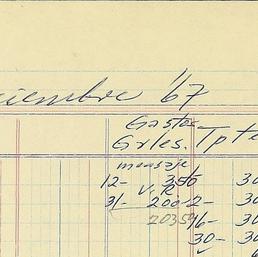 ciembre '67
Gastos
Grles. Tpte
mensaje
12- 350 30
V.R
31- 200 2- 30
20359 16- 30
30- 30